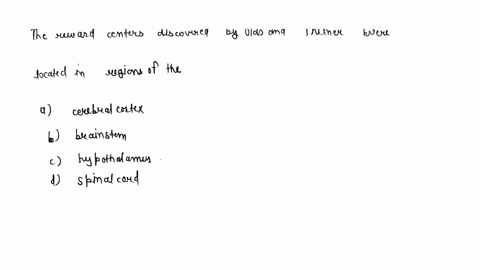 The reward centers discovered by Olds and Milner were
located in regions of the
a) cerebral cortex
b) brainstem
c) hypothalamus
d) spinal cord